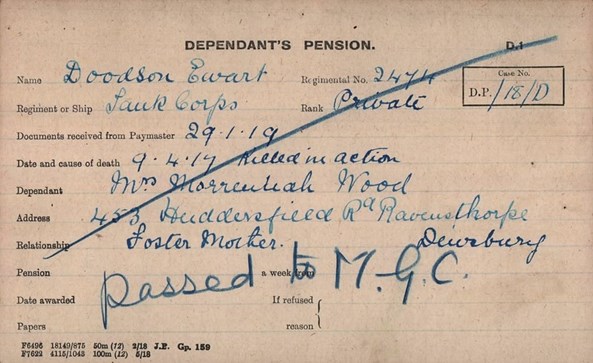 DEPENDANT'S PENSION. D.1
Name Doodson Ewart Regimental No. 2474 Case No.
Regiment or Ship Tank Corps Rank Private D.P./18/D
Documents received from Paymaster 29.1.19
Date and cause of death 9.4.17 Killed in action
Dependant Mrs Wood
Address 453 Huddersfield Rd Ravensthorpe
Relationship Foster Mother. Dewsbury
Pension a week from
passed to M.G.C.
Date awarded If refused
Papers reason
F6496 18149/875 50m (12) 2/18 J.P. Gp. 159
F7622 4115/1043 100m (12) 5/18